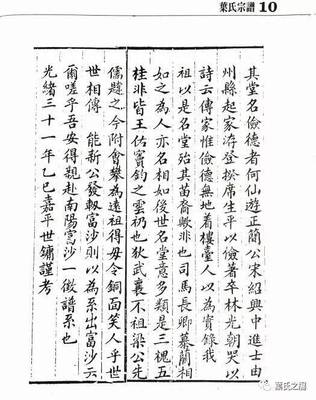 葉氏宗譜 10
其堂名儉德者何仙遊正簡公宋紹興中進士由
州縣起家洊登揆席生平以儉著卒林光朝哭以
詩云傳家惟儉德無地着樓臺人以為實錄我
祖以是名堂殆其苗裔歟非也司馬長卿慕藺相
如之為人亦名相如後世名堂意多類是三槐五
桂非皆王佑竇鈞之雲礽也狄武襄不祖梁公先
儒韙之今附會攀為遠祖得毋令銅面笑人乎世
世相傳 能新公發軔富沙則以為系出富沙云
爾嗟乎吾安得親赴南陽富沙一徵譜系也
光緒三十一年乙巳嘉平世鏞謹考
葉氏之瀾